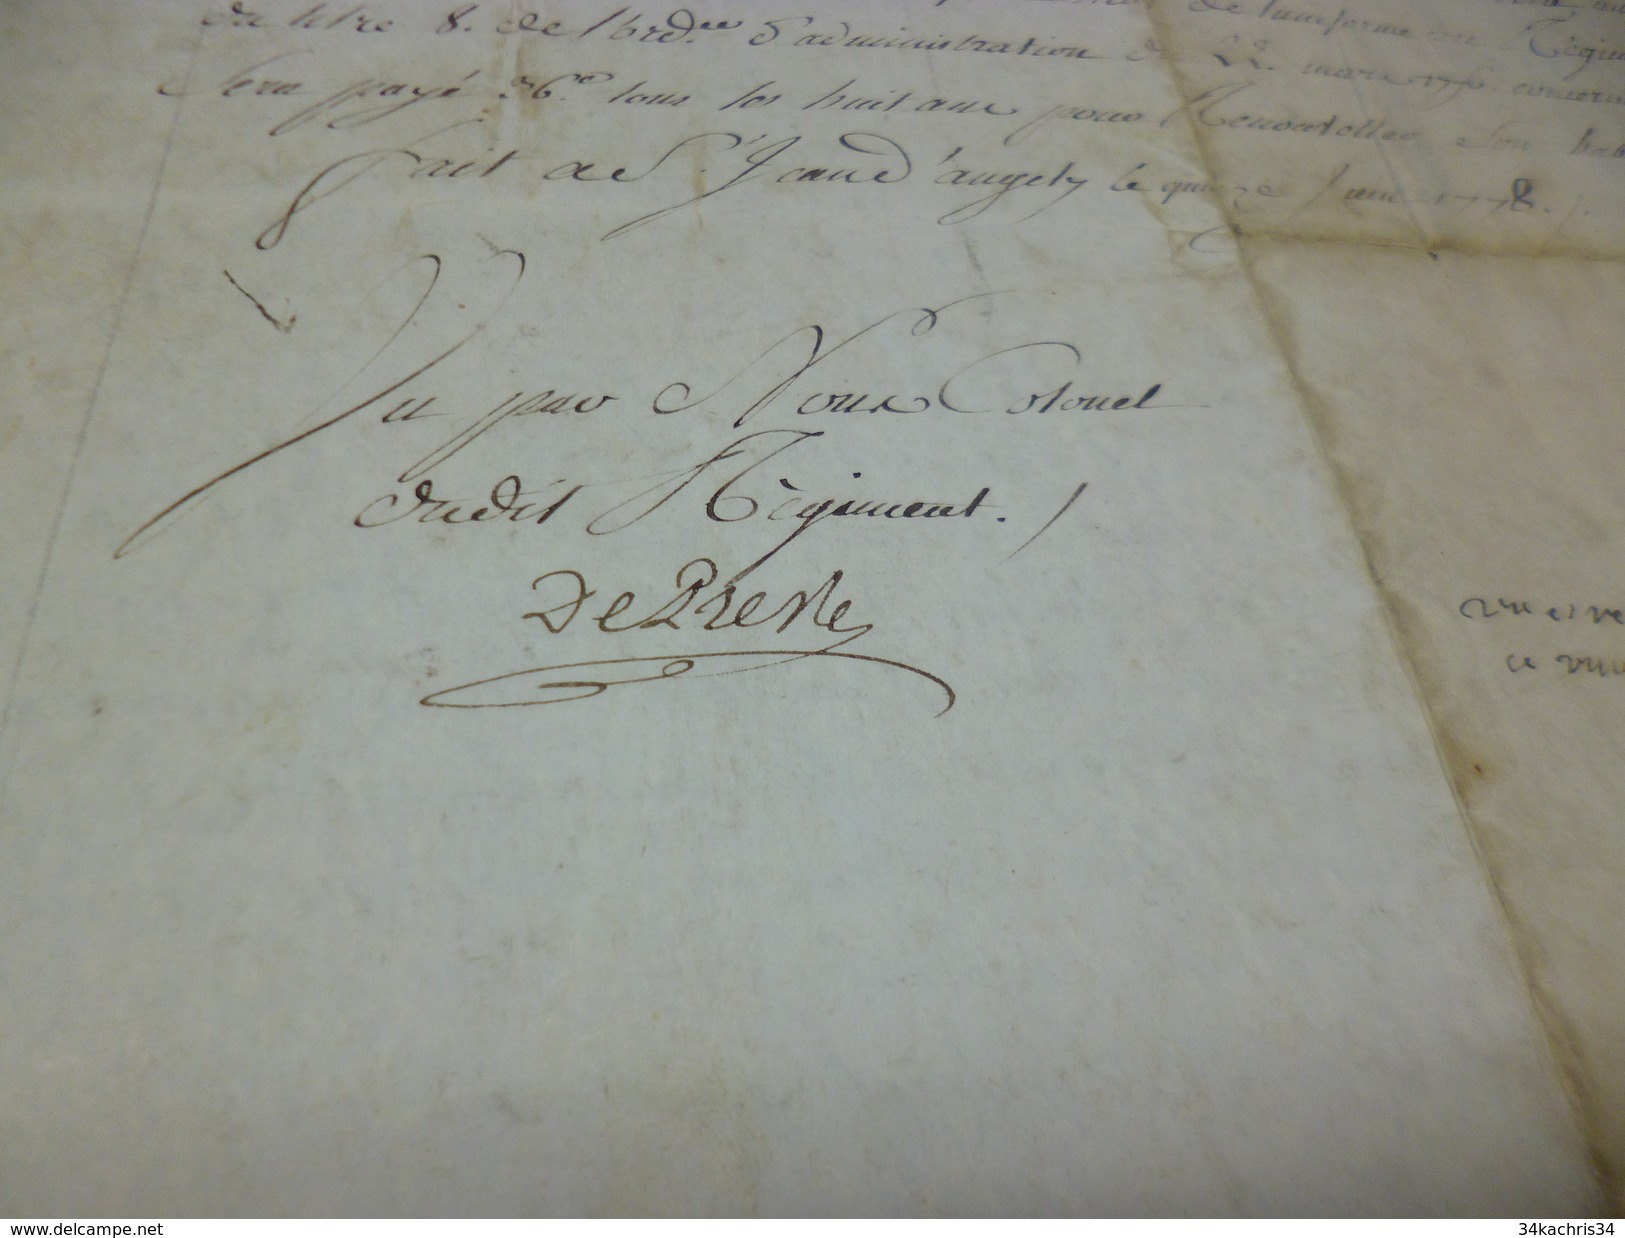 du titre 8. de l'ord.ce d'administration du 25. mars 1776. concern
Sera payé 36.# tous les huit ans pour Renouveller Son hab
fait a S.t Jean d'angely le quinze Juin 1778.
Vu par Nous Colonel
dudit Régiment.
De Presle
vu et ve
ce vin
www.delcampe.net
34kachris34